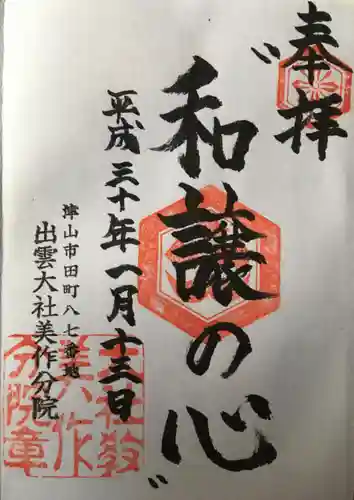 奉拝
〝和譲の心〟
平成三十年一月十三日
津山市田町八七番地
出雲大社美作分院
大社教
美作
分院章